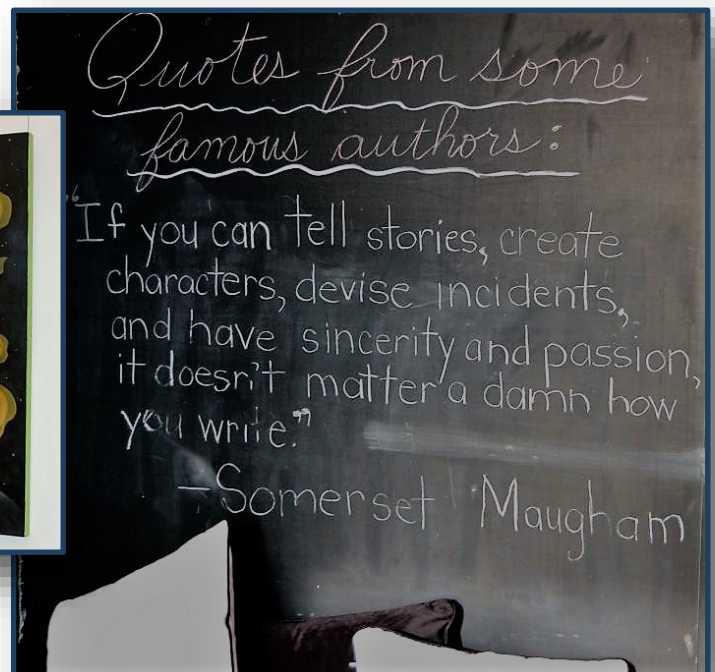 Quotes from some
famous authors:
"If you can tell stories, create
characters, devise incidents,
and have sincerity and passion,
it doesn't matter a damn how
you write."
-Somerset Maugham